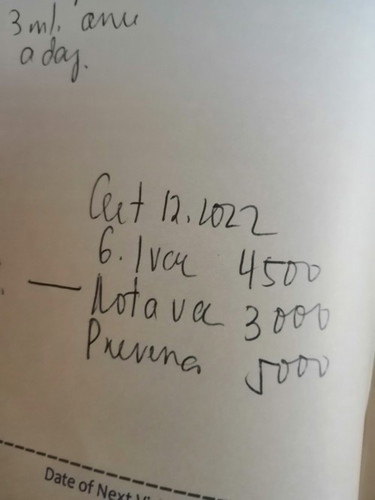 3 ml. once
a day.
Oct 12.2022
6. 1 vac 4500
Rotavac 3000
Prevena 5000
Date of Next